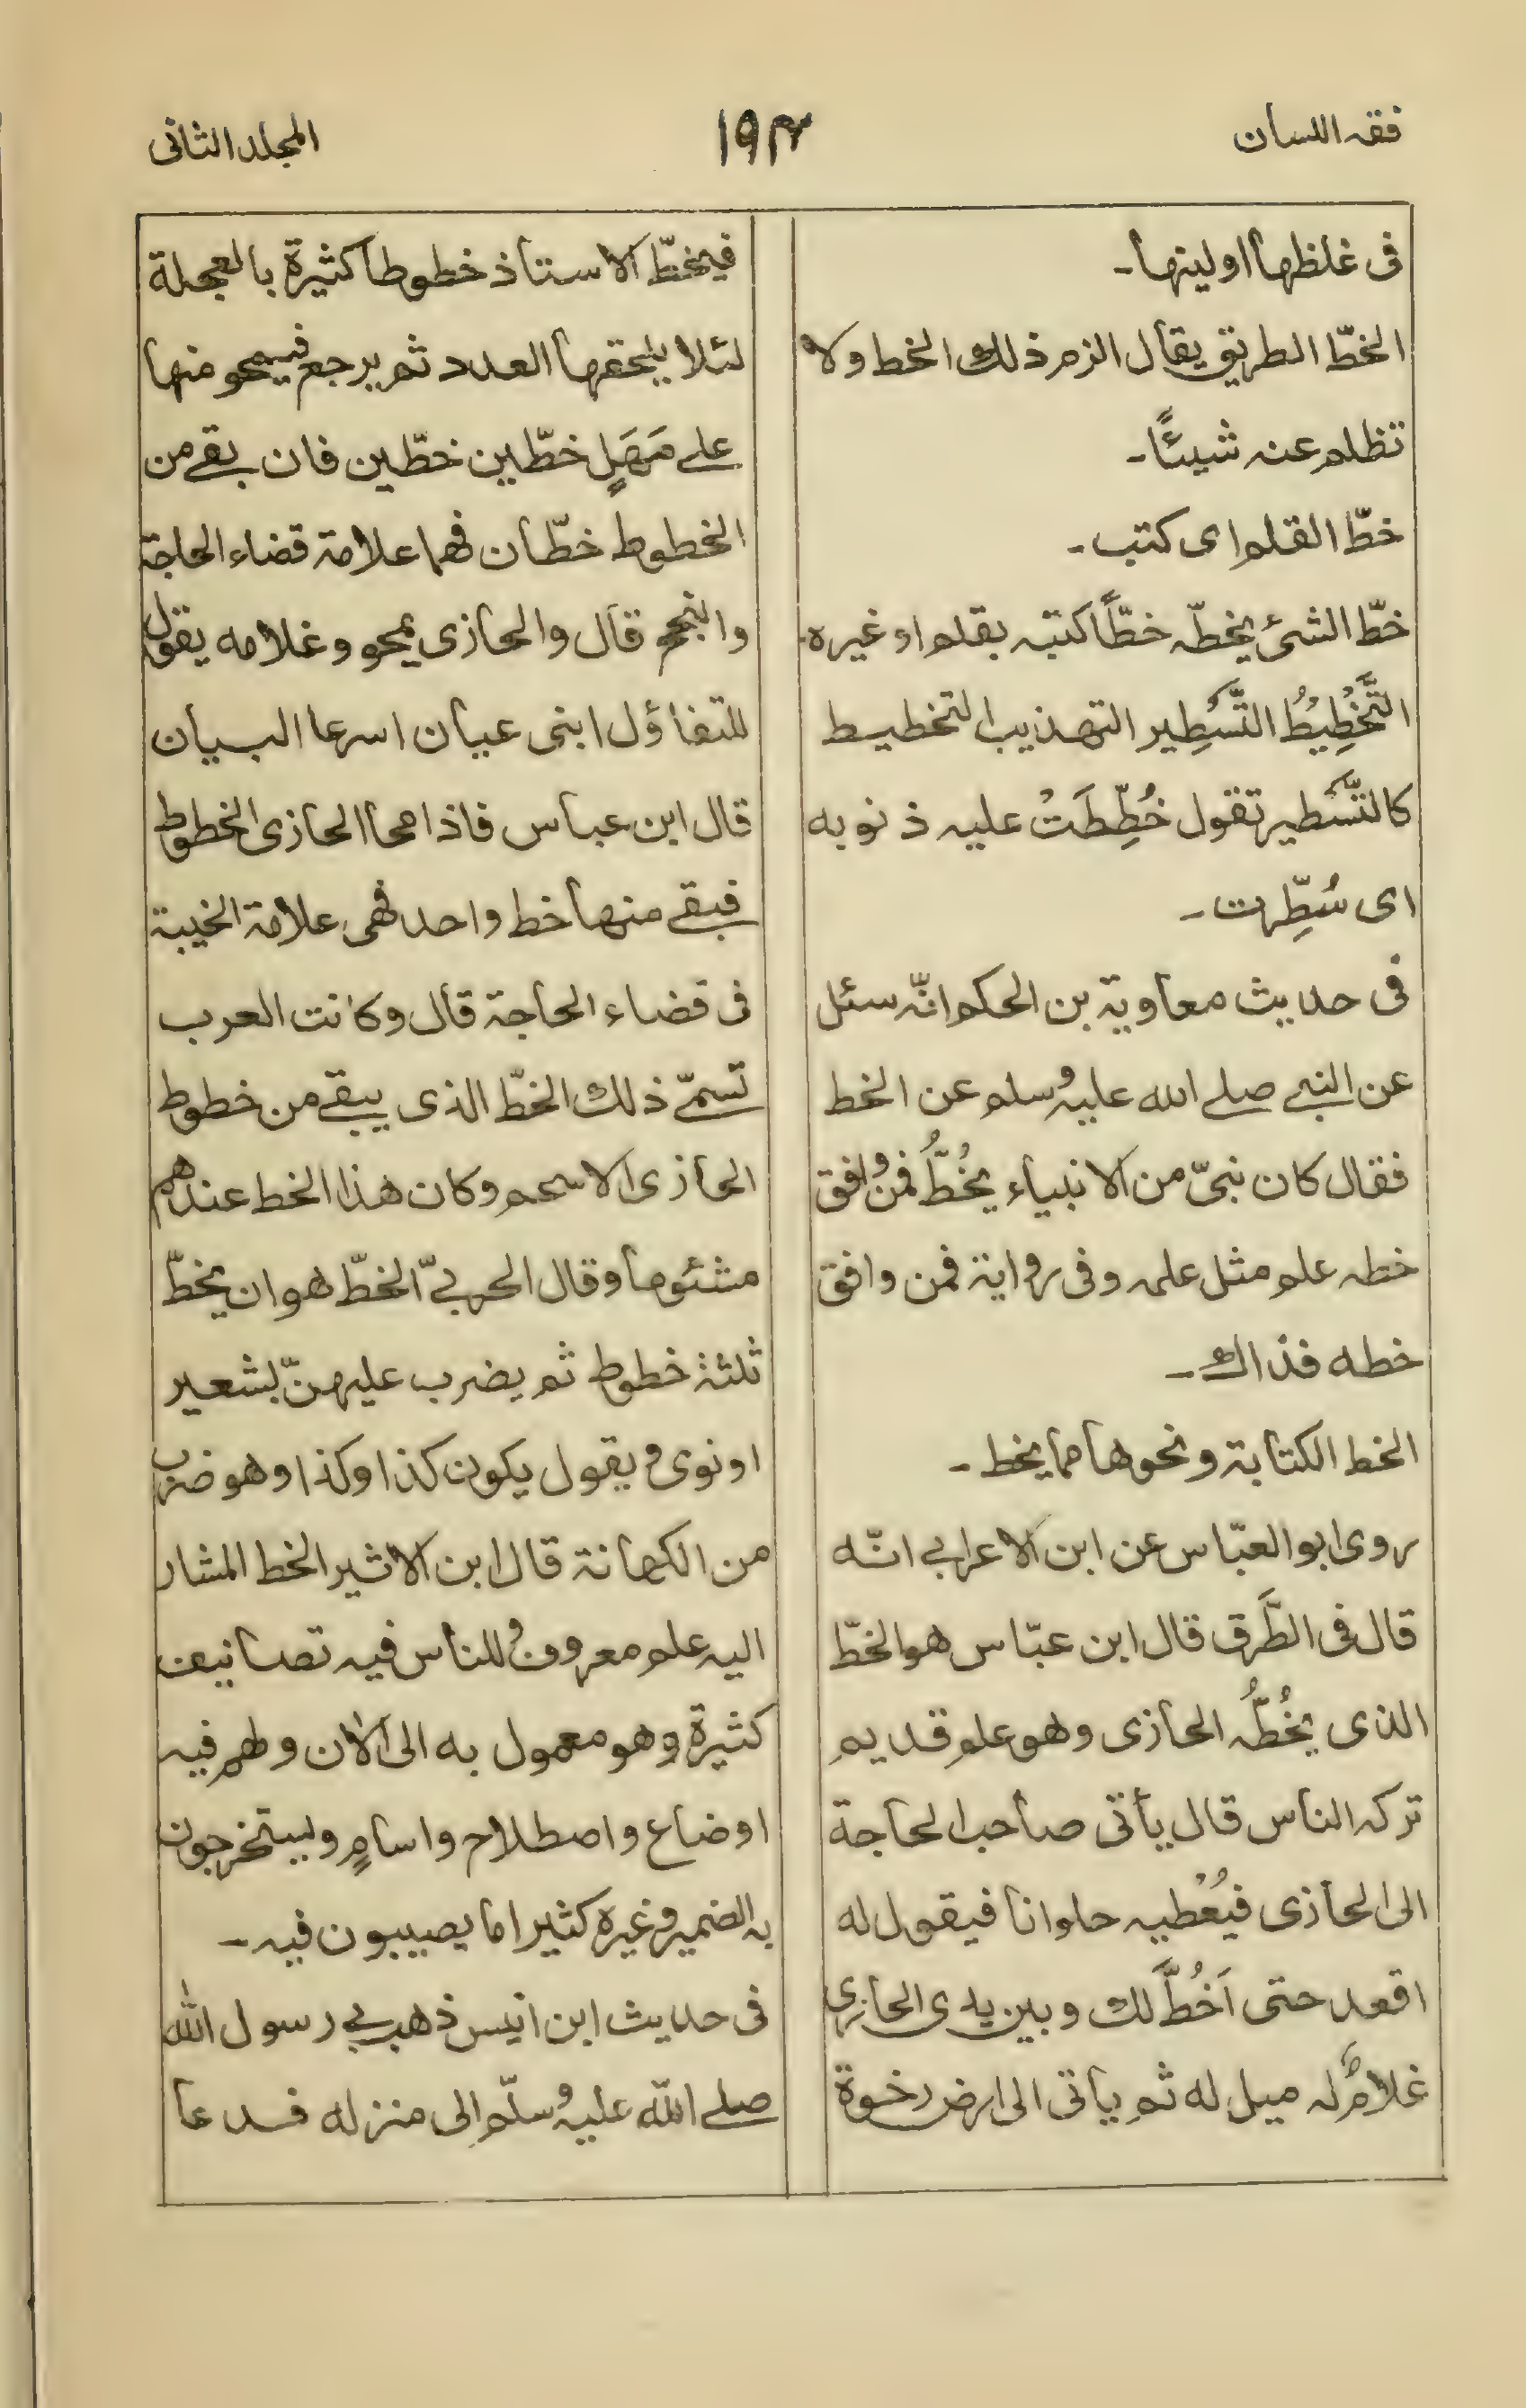 فقه اللسان
١٩٣
المجلد الثانی
فی غلظها او لینها۔
الخطّ الطریق یقال الزم ذلك الخط ولا
تظلم عنه شیئًا۔
خطّ القلم ای کتب۔
خطّ الشیٔ یخطّه خطّاً کتبه بقلم او غیره۔
التَّخْطِیْطُ التَّسْطِیر التهذیب التخطیط
کالتَّسْطیر تقول خُطِّطَتْ علیه ذنوبه
ای سُطِّرت۔
فی حدیث معاویة بن الحکم انّه سئل
عن النبی صلے الله علیه وسلم عن الخط
فقال کان نبیّ من الانبیاء یخُطُّ فمن وافق
خطه علم مثل علمه وفی روایة فمن وافق
خطه فذاك۔
الخط الکتابة ونحوها مما یخط۔
روی ابو العبّاس عن ابن الاعرابی انّه
قال فی الطَّرق قال ابن عبّاس هو الخطّ
الذی یخُطُّه الحازی وهو علم قدیم
ترکه الناس قال یأتی صاحب الحاجة
الی الحازی فیُعْطیه حلوانا فیقول له
اقعد حتی اَخُطَّ لك وبین یدی الحازی
غلامٌ له میل له ثم یأتی الی ارض رخوة
فیخطّ الاستاذ خطوطا کثیرة بالعجلة
لئلا یلحقها العدد ثم یرجع فیمحو منها
علے مَهَلٍ خطّین خطّین فان بقے من
الخطوط خطّان فهما علامة قضاء الحاجة
والنجح قال والحازی یمحو وغلامه یقول
للتفاؤل ابنی عیان اسرعا البیان
قال ابن عباس فاذا محا الحازی الخطوط
فبقے منها خط واحد فهی علامة الخیبة
فی قضاء الحاجة قال وکانت العرب
تسمّے ذلك الخطّ الذی یبقے من خطوط
الحازی الاسحم وکان هذا الخط عندهم
مشئوما وقال الحربیّ الخطّ هو ان یخطّ
ثلثة خطوط ثم یضرب علیهنّ بشعیر
او نوی ویقول یکون کذا وکذا وهو ضرب
من الکهانة قال ابن الاثیر الخط المشار
الیه علم معروف وللناس فیه تصانیف
کثیرة وهو معمول به الی الآن ولهم فیه
اوضاع واصطلاح واسامٍ ویستخرجون
به الضمیر وغیره کثیرا ما یصیبون فیه۔
فی حدیث ابن انیس ذهب بی رسول الله
صلے الله علیه وسلّم الی منزله فدعا